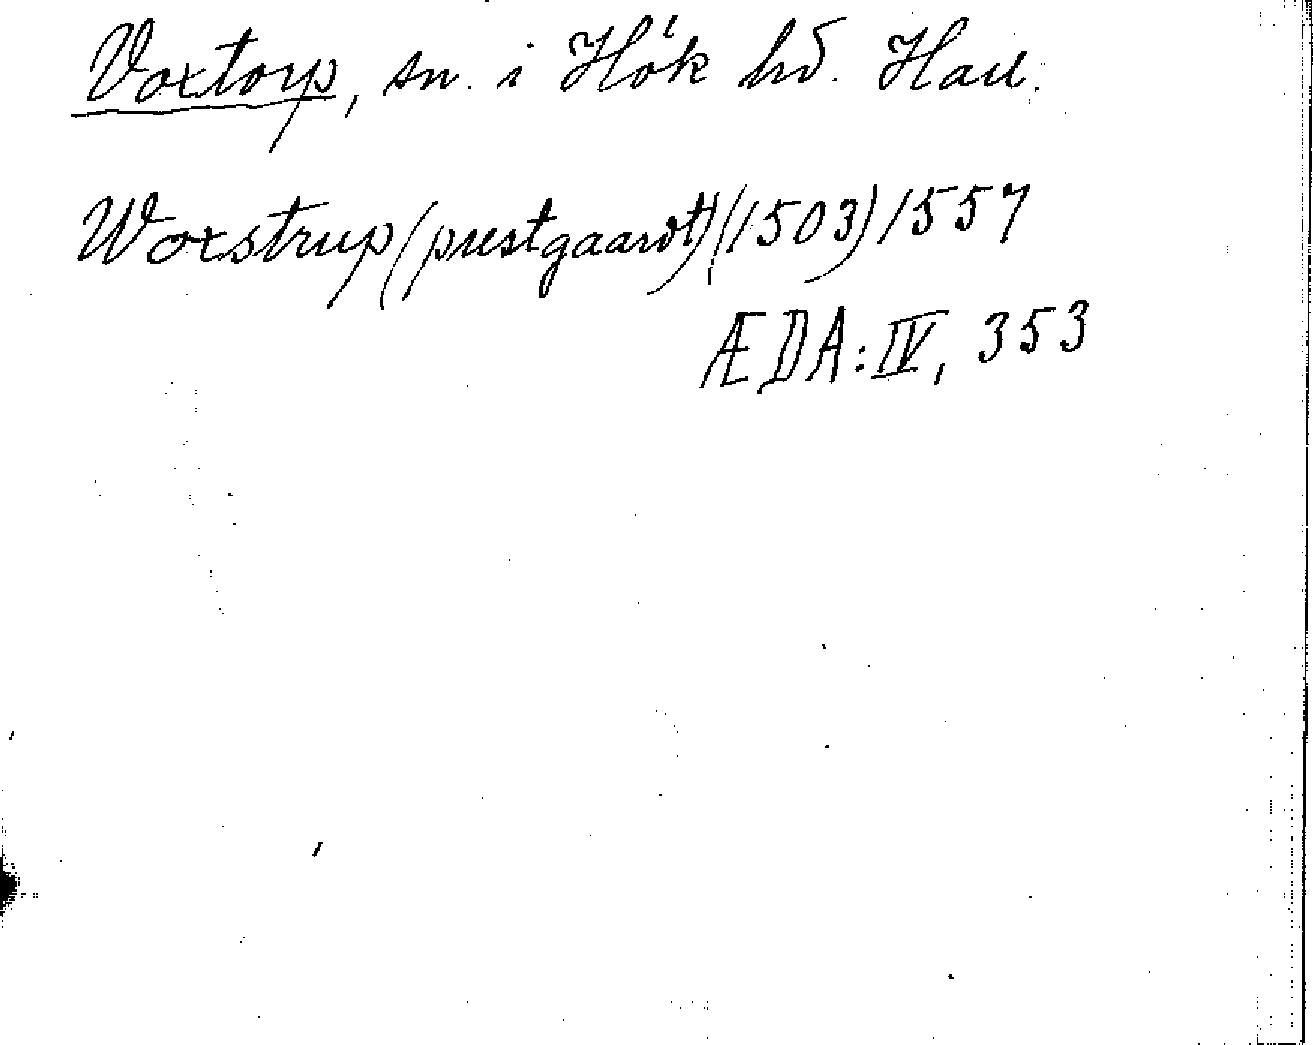 Voxtorp, sn. i Hök hd. Hall.
Woxstrup (prestgaardt) (1503) 1557
ÆDA: IV, 353